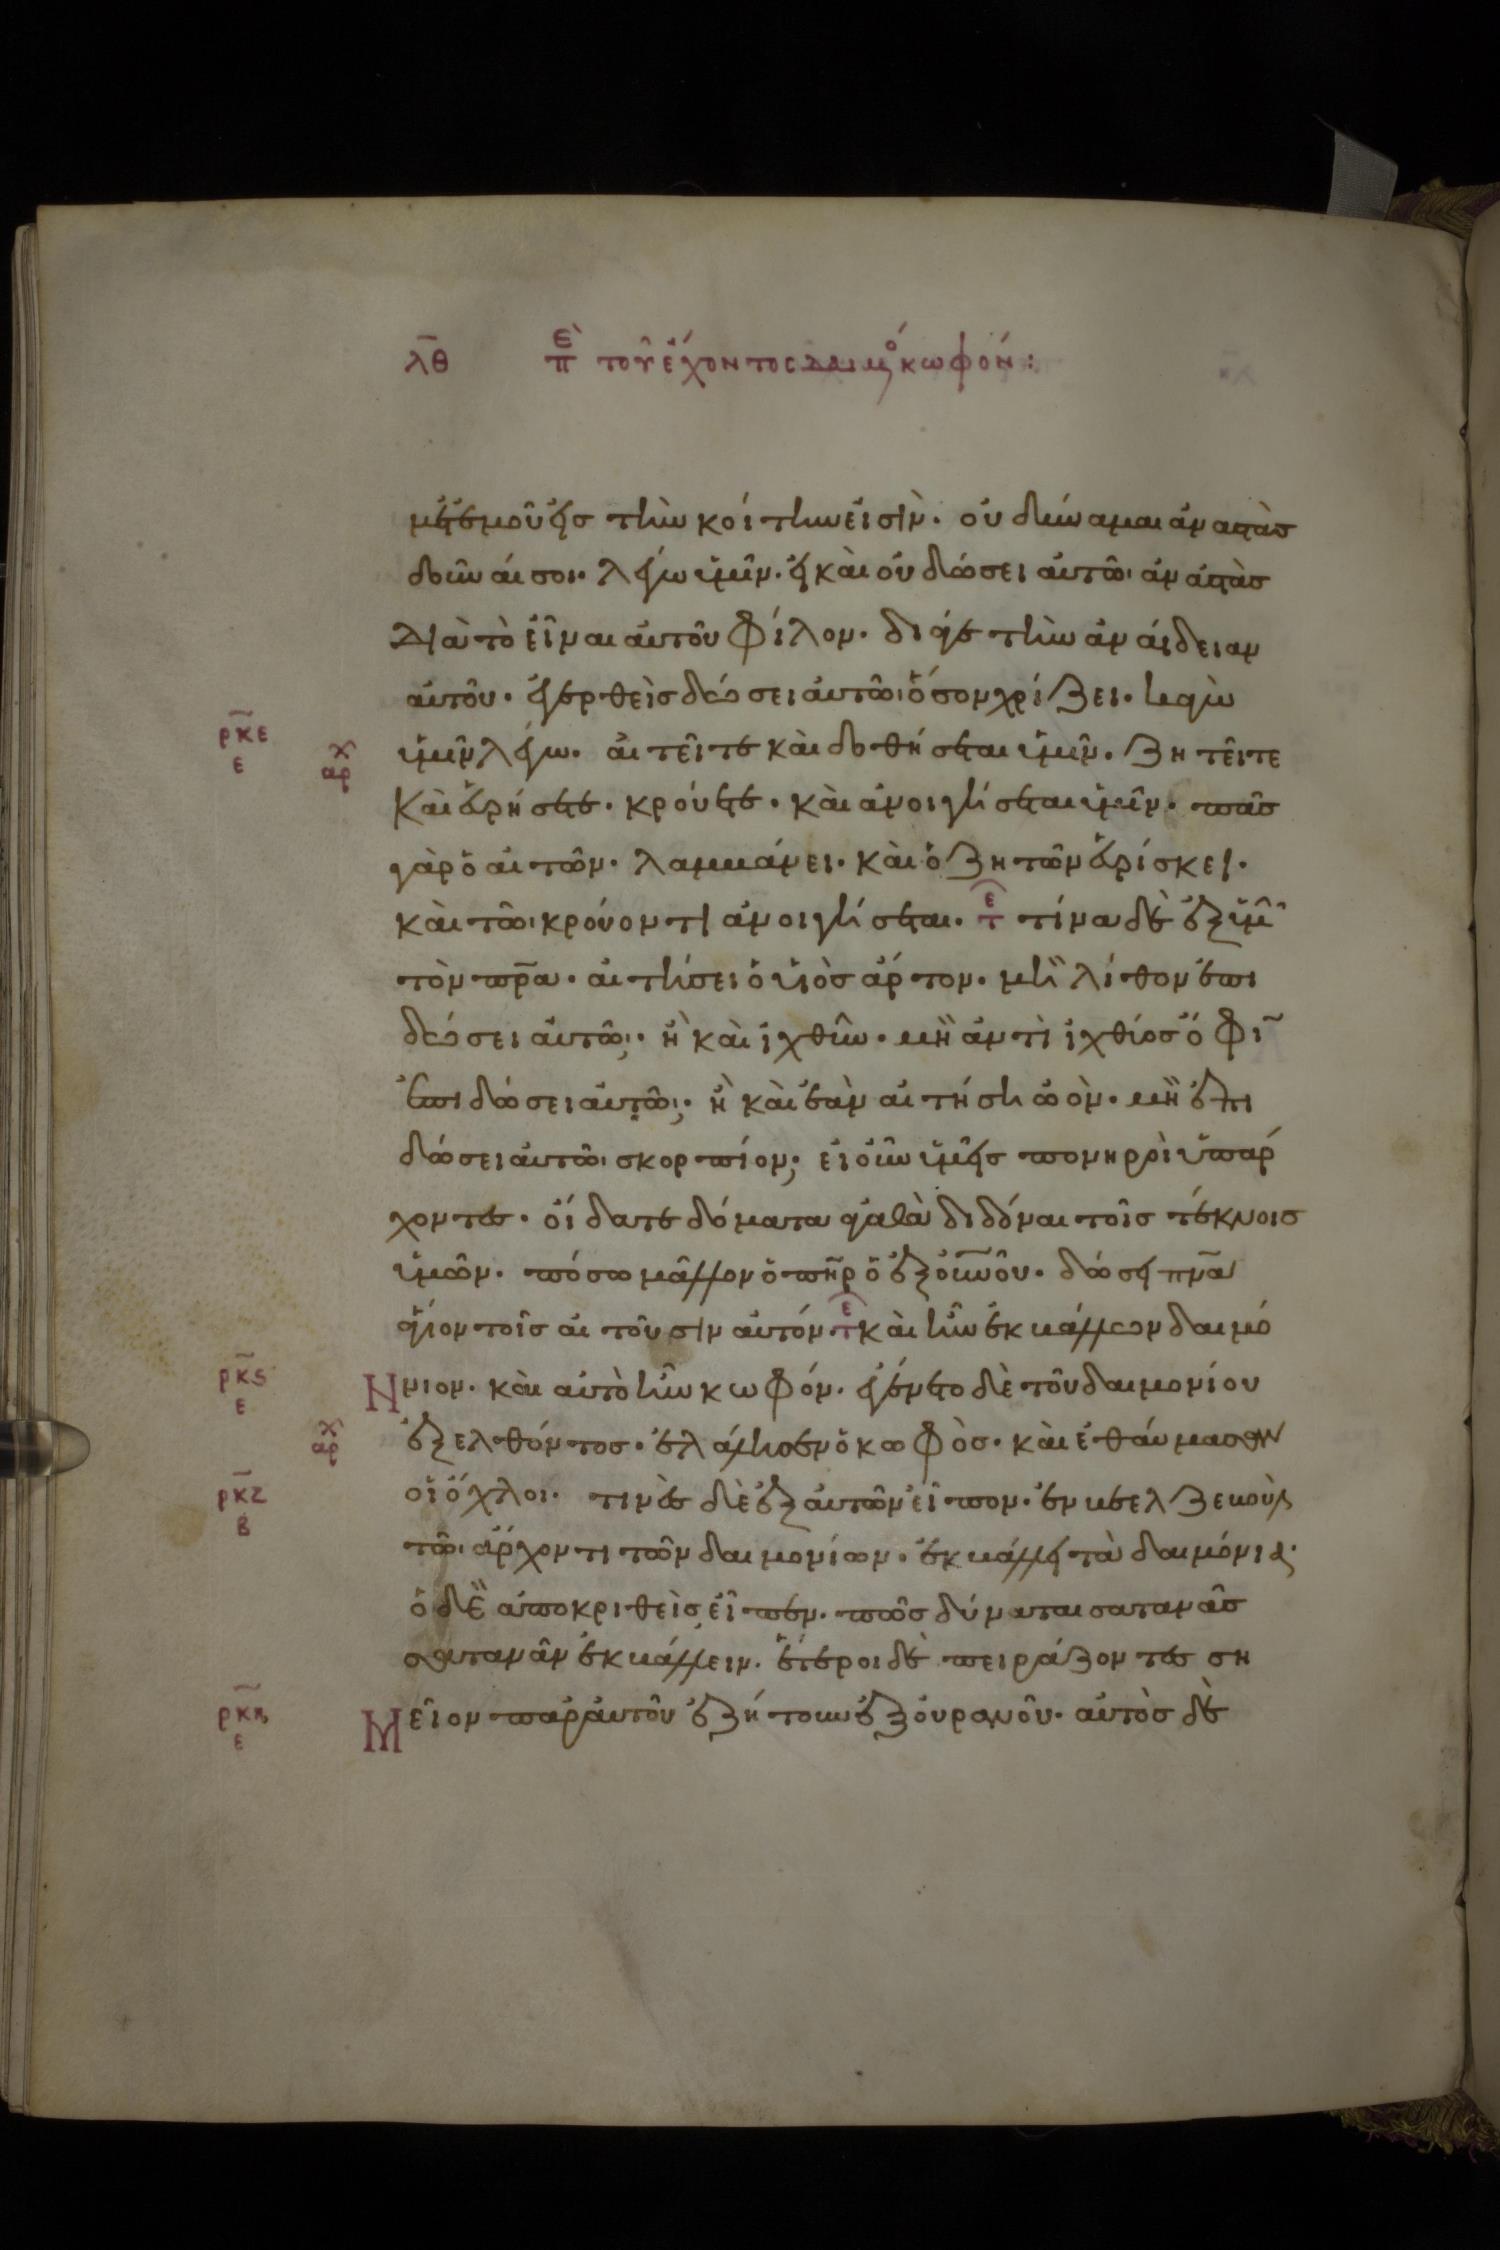 λθ πε τοῦ ἔχοντος δαιμό κωφόν:
μετ' ἐμοῦ εἰς τὴν κοίτην εἰσὶν. οὐ δύναμαι ἀναστὰς
δοῦναί σοι. λέγω ὑμῖν. εἰ καὶ οὐ δώσει αὐτῶι ἀναστὰς
διὰ τὸ εἶναι αὐτοῦ φίλον. διά γε τὴν ἀναίδειαν
αὐτοῦ. ἐγερθεὶς δώσει αὐτῶι ὅσον χρίζει. κἀγὼ
ρκε ε
χ αρ
ὑμῖν λέγω. αἰτεῖτε καὶ δοθήσεται ὑμῖν. ζητεῖτε
καὶ εὑρήσετε. κρούετε. καὶ ἀνοιγήσεται ὑμῖν. πᾶς
γὰρ ὁ αἰτῶν. λαμβάνει. καὶ ὁ ζητῶν εὑρίσκει.
καὶ τῶι κρούοντι ἀνοιγήσεται. τε τίνα δὲ ἐξ ὑμῶν
τὸν πρα. αἰτήσει ὁ υἱὸς ἄρτον. μὴ λίθον ἐπι
δώσει αὐτῶι; ἢ καὶ ἰχθῦν. μὴ ἀντὶ ἰχθύος ὄφι
ἐπιδώσει αὐτῶι; ἢ καὶ ἐὰν αἰτήση ὠὸν. μὴ ἐπι
δώσει αὐτῶι σκορπίον; εἰ οὖν ὑμεῖς πονηροὶ ὑπάρ
χοντες. οἴδατε δόματα ἀγαθὰ διδόναι τοῖς τέκνοις
ὑμῶν. πόσω μᾶλλον ὁ πηρ ὁ ἐξ οὐνοῦ. δώσει πνα
ἅγιον τοῖς αἰτοῦσιν αὐτόν τε καὶ ἦν ἐκβάλλων δαιμό
ρκϛ ε
Ννιον. καὶ αὐτὸ ἦν κωφόν. ἐγένετο δὲ τοῦ δαιμονίου
χ αρ
ἐξελθόντος. ἐλάλησεν ὁ κωφὸς. καὶ ἐθαύμασαν
ρκζ β
οἱ ὄχλοι. τινὲς δὲ ἐξ αὐτῶν εἶπον. ἐν βεελζεβοὺλ
τῶι ἄρχοντι τῶν δαιμονίων. ἐκβάλλει τὰ δαιμόνια.
ὁ δὲ ἀποκριθεὶς εἶπεν. πῶς δύναται σατανᾶς
σατανᾶν ἐκβάλλειν. ἕτεροι δὲ πειράζοντες ση
ρκη ε
Μεῖον παρ' αὐτοῦ ἐζήτουν ἐξ οὐρανοῦ. αὐτὸς δὲ